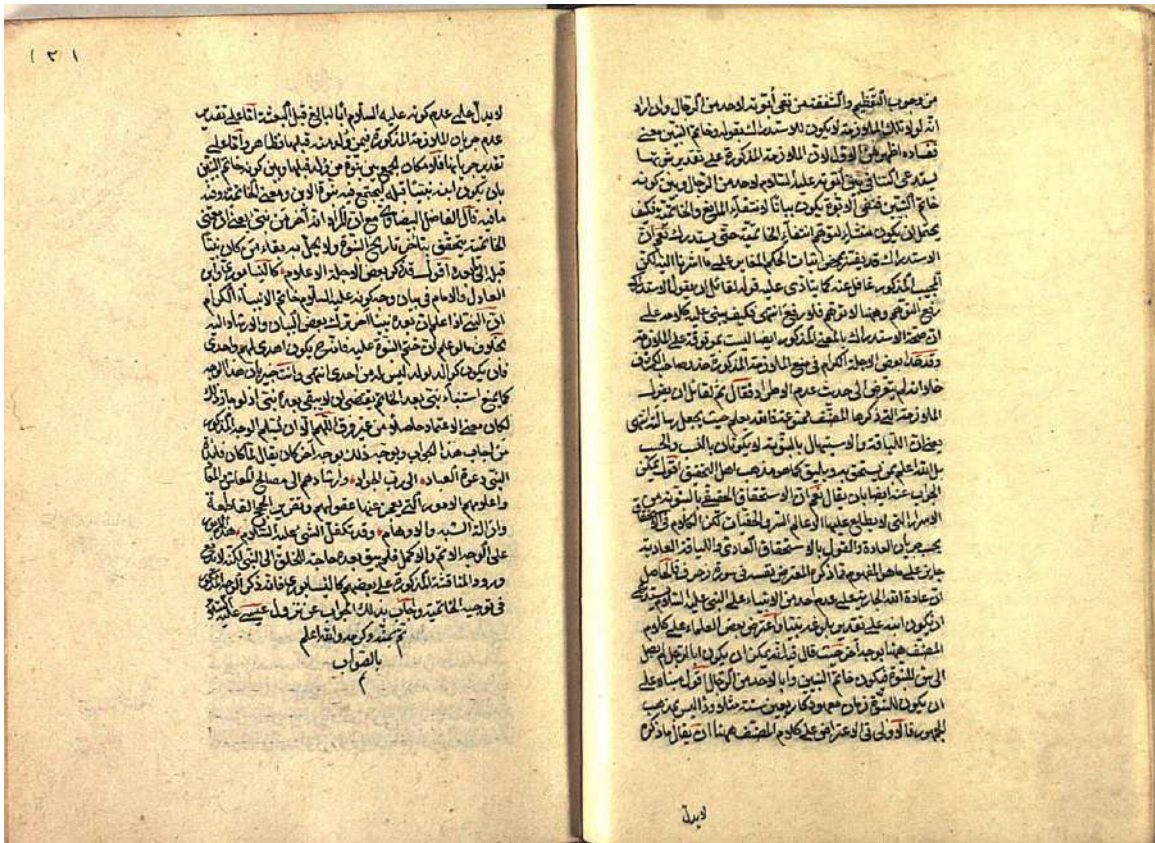 من وجوب التعظيم والشفقة من نفي أبوته لاحد من الرجال وان اراد
انه لولا تلك الملازمة لا يكون للاستدراك بقوله وخاتم النبيين معنى
ففساده اظهر من الاول لان الملازمة المذكورة على تقدير ثبوتها
يستدعي التنافي بين أبوته عليه السلام لاحد من الرجال وبين كونه
خاتم النبيين فنفي الابوة يكون بيانا لانتفاء المانع والخاتمية فكيف
يحتمل ان يكون منشأ لتوهم انتفاء الخاتمية حتى يستدرك نعم ان
الاستدراك قد يفسر بمحض اثبات الحكم المغاير على ما اشرنا اليه لكن
المجيب المذكور غافل عنه كما ينادي عليه قوله لقائل ان يقول الاستدراك
رفع التوهم وههنا لا توهم فلا رفع انتهى فكيف يبنى عليه كلامه على
ان صحة الاستدراك بالمعنى المذكور ايضا ليست بموقوفة على الملازمة
وقد حذا بعض الاجلة الكرام في منع الملازمة المذكورة حذو صاحب الكشف
خلا انه لم يتعرض الى حديث عدم الاطراد فقال ثم لقائل ان يقول
الملازمة التي ذكرها المصنف ممنوعة فالله يعلم حيث يجعل رسالته انتهى
يعني ان اللياقة والاستيهال بالنبوة لا يكونان بالنسب والحسب
بل الله اعلم بمن يستحق به ويليق كما هو مذهب اهل التحقيق اقول يمكن
الجواب عنه ايضا بان يقال نعم ان الاستحقاق الحقيقي بالنبوة من
الاسرار التي لا يطلع عليها الا عالم السر والخفيات لكن الكلام في الاستحقاق
بحسب جريان العادة والقول بالاستحقاق العادي واللياقة العادية
جايز على ما هو المفهوم مما ذكره المعترض نفسه في سورة زخرف فالحاصل
ان عادة الله الجارية على عدم احد من الانبياء على النبي عليه السلام يستدعي
ان يكون ابنه على تقدير بلوغه نبيا واعترض بعض العلماء على كلام
المصنف ههنا بوجه آخر حيث قال قيل انه يمكن ان يكون ابا لرجل لم يصل
الى سن النبوة فيكون خاتم النبيين وابا لاحد من الرجال اقول مبناه على
ان يكون للنبوة زمان معهود كاربعين سنة مثلا وذا ليس بمذهب
الجمهور فالاولى في الاعتراض على كلام المصنف ههنا ان يقال ما ذكره
لا يدل
٢١
لا يدل على عدم كونه عليه السلام ابا لبالغ قبل البعثة اما على تقدير
عدم جريان الملازمة المذكورة فيمن ولد منه قبلها فظاهر واما على
تقدير جريانها فلامكان الجمع بين نبوة من ولد قبلها وبين كونه خاتم النبيين
بان يكون ابنه نبيا قبله فيجتمع فيه نبوة الابن ومعنى الخاتمية وفيه
ما فيه قال الفاضل البيضاوي مع ان المراد انه آخر من نبئ يعني ان معنى
الخاتمية يتحقق بتأخر تاريخ النبوة ولا يخل به بقاء من كان نبيا
قبله الى ما بعده اقول قد ذكر بعض الاجلة الاعلام كالنيسابوري وابن
العادل والامام في بيان وجه كونه عليه السلام خاتم الانبياء الكرام
ان النبي اذا علم ان بعده نبيا آخر ترك بعض البيان والارشاد اليه
بخلاف ما لو علم ان ختم النبوة عليه فانه ح يكون اهدى لهم واجدى
فان يكون كوالد لولد ليس له من احد انتهى وانت خبير بان هذا الوجه
كما يمنع استنباء نبي بعد الخاتم يقتضي ان لا يبقى بعده نبي اذ لو جاز ذلك
لكان معنى الاعتماد حاصلا من غير فرق اللهم الا ان يسلم الوجه المذكور
من اجاب هذا الجواب ويوجه ذلك بوجه آخر كان يقال لما كان فائدة
النبي دعوة العباد الى رب المراد وارشادهم الى مصالح المعاش والمعاد
واعلامهم الامور التي يعجز عنها عقولهم وتقرير الحجج القاطعة
وازالة الشبه والاوهام وقد تكفل النبي عليه السلام هذه الامور
على الوجه الاتم والاكمل فلم يبق بعده حاجة للخلق الى النبي لكنه لا يدفع
ورود المناقشة المذكورة على بعضهم كالنيسابوري فانه ذكر الوجه المذكور
في توجيه الخاتمية واجاب بذلك الجواب عن نزول عيسى عليه السلام
تم بمنه وكرمه والله اعلم
بالصواب
م